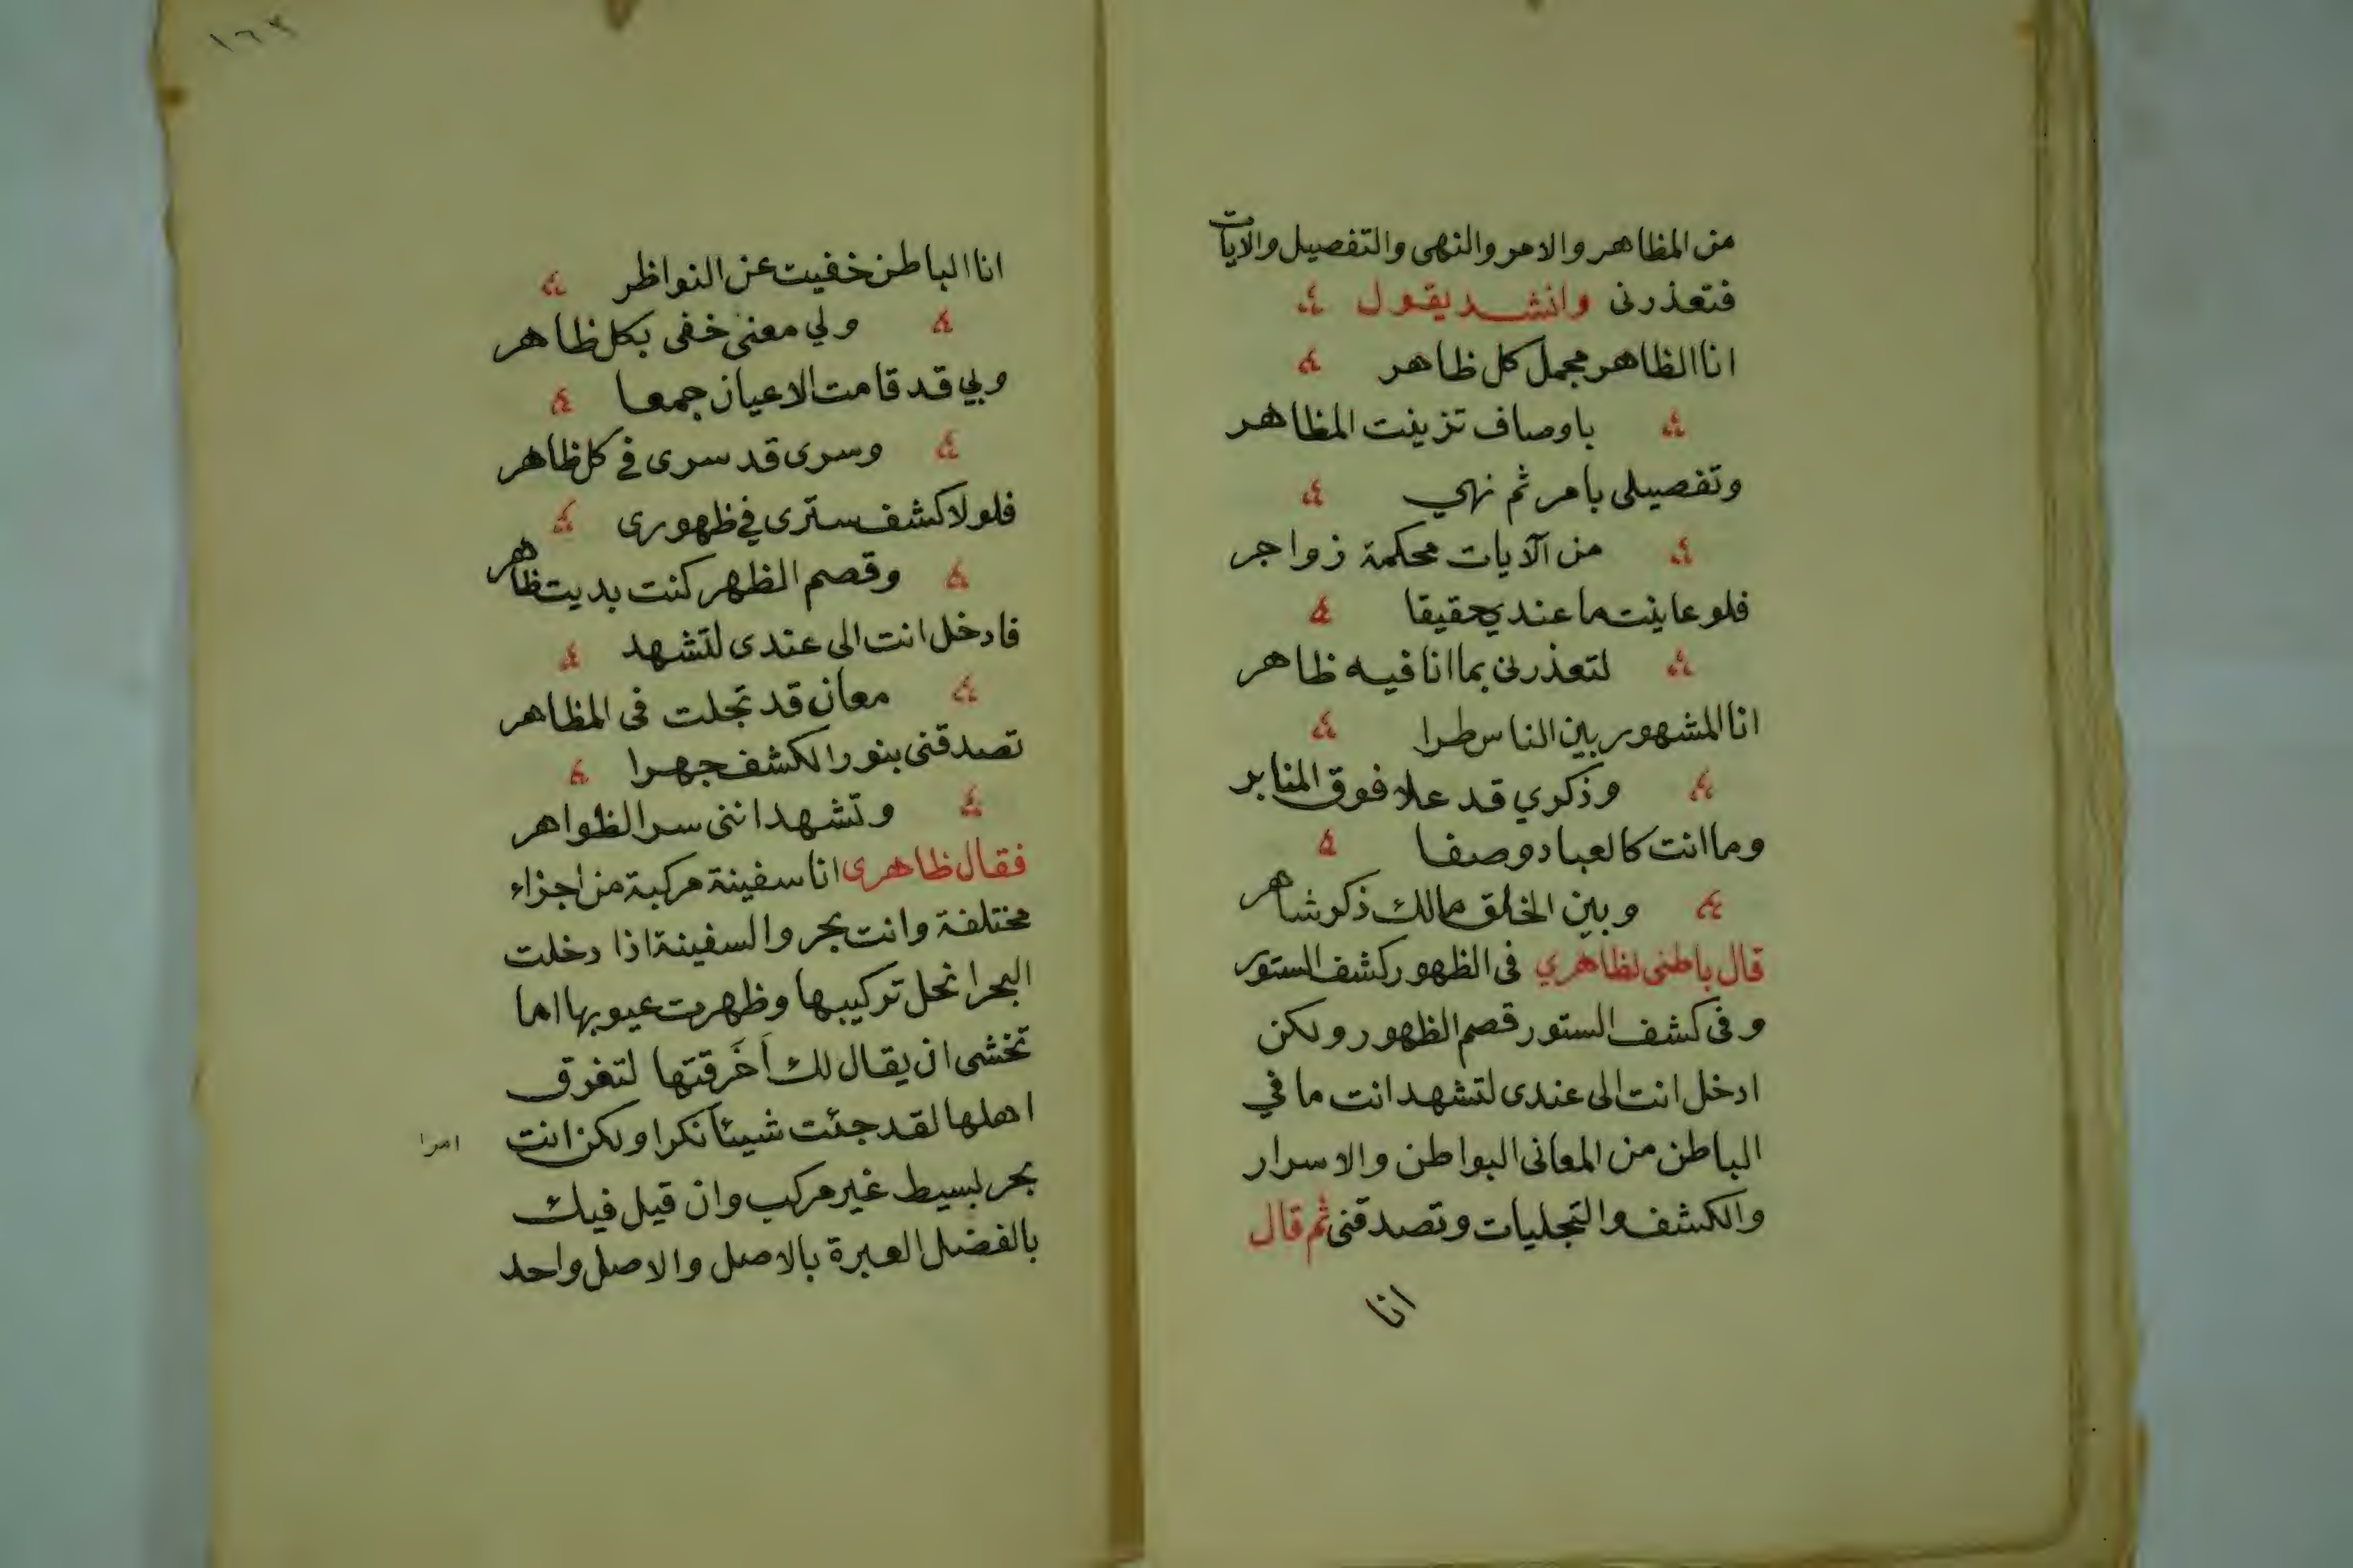 من المظاهر والامر والنهى والتفصيل والايات
فتعذرنى وانشد يقول
انا الظاهر مجمل كل ظاهر
باوصاف تزينت المظاهر
وتفصيلى بامر ثم نهي
من الآيات محكمة زواجر
فلو عاينت ما عندي حقيقا
لتعذرنى بما انا فيه ظاهر
انا المشهور بين الناس طرا
وذكري قد علا فوق المنابر
وما انت كالعباد وصفا
وبين الخلق مالك ذكر شاهر
قال باطنى لظاهري فى الظهور كشف الستور
وفى كشف الستور قصم الظهور ولكن
ادخل انت الى عندى لتشهد انت ما في
الباطن من المعانى البواطن والاسرار
والكشف والتجليات وتصدقنى ثم قال
انا
١٦٢
انا الباطن خفيت عن النواظر
ولي معنى خفى بكل ظاهر
وبي قد قامت الاعيان جمعا
وسرى قد سرى في كل ظاهر
فلولا كشف سترى في ظهورى
وقصم الظهر كنت بديت ظاهر
فادخل انت الى عندى لتشهد
معان قد تجلت فى المظاهر
تصدقنى بنور الكشف جهرا
وتشهد اننى سر الظواهر
فقال ظاهرى انا سفينة مركبة من اجزاء
مختلفة وانت بحر والسفينة اذا دخلت
البحر انحل تركيبها وظهرت عيوبها اما
تخشى ان يقال لك اَخَرقتها لتغرق
اهلها لقد جئت شيئا نكرا ولكن انت
امرا
بحر بسيط غير مركب وان قيل فيك
بالفضل العبرة بالاصل والاصل واحد